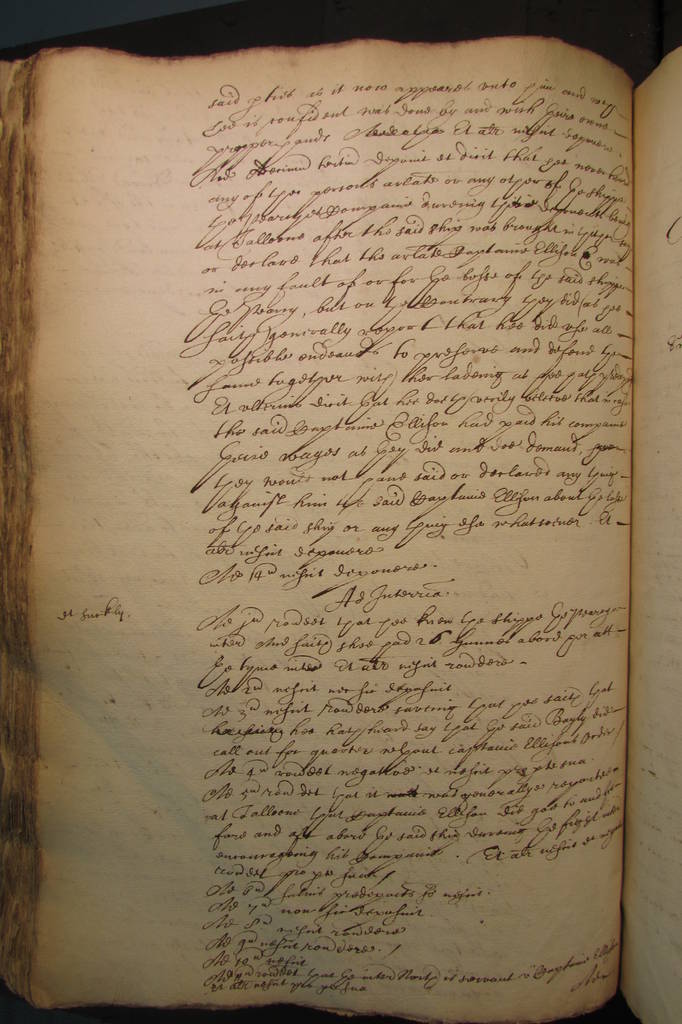 said pties as it now appeares unto him and
hee is confident was done by and with theire owne
propper hands Et aliter nescit deponere
Ad decimum tertium deponit et dicit that hee never heard
any of the persons arlate or any other of the shipps
the Pearing Companie dureing their being
at Falleone after the said ship was brought in thither say
or declare that the arlate Captaine Ellison was
in any fault of or for the losse of the said shippe
the but on the Contrary they did (as hee
saith) generally report that hee did use all
possible endeavors to preserve and defend the
same together with her ladeing as hee hath
Et ulterius dicit that hee doth verily beleeve that in case
the said Captaine Ellison had paid his companie
theire wages as they did and doe demand,
they would not have said or declared any thing
against him the said Captaine Ellison about the losse
of the said ship or any thing else whatsoever Et
aliter nescit deponere
Ad 14um nescit deponere.
Ad Interria.
Ad jum rondet that hee knew the shippe the
et huiusmodi.
inter And saith shee had 26 Gunnes abord her att
the tyme inter Et aliter nescit rondere
Ad 2d nescit nec sic deposuit
Ad 3um nescit rondere saveing that hee saith that
hee hath heard say that the said did
call out for quarter without captaine Ellisons Order
Ad 4um rondet negative et nescit pro pte sua
Ad 5um rondet that it was generallye reported
at Falleone that Captaine Ellison did goe to and
fore and aft abord the said ship dureing the fight
encourageing his Companie. Et aliter nescit
rondere pro pte sua
Ad 6um satis predeposuit nescit.
Ad 7um non sic deposuit
Ad 8um nescit rondere
Ad 9um nescit rondere.
Ad 10um nescit
Ad 11um rondet that the inter North is servant to Captaine Ellison
et aliter nescit pro pte sua
Ad